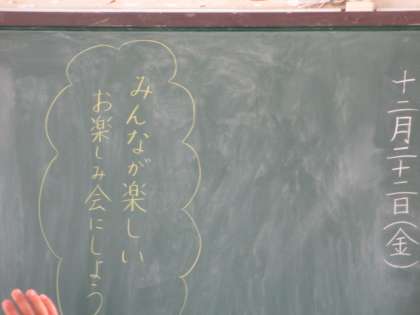 十二月二十二日(金)
みんなが楽しい
お楽しみ会にしよう